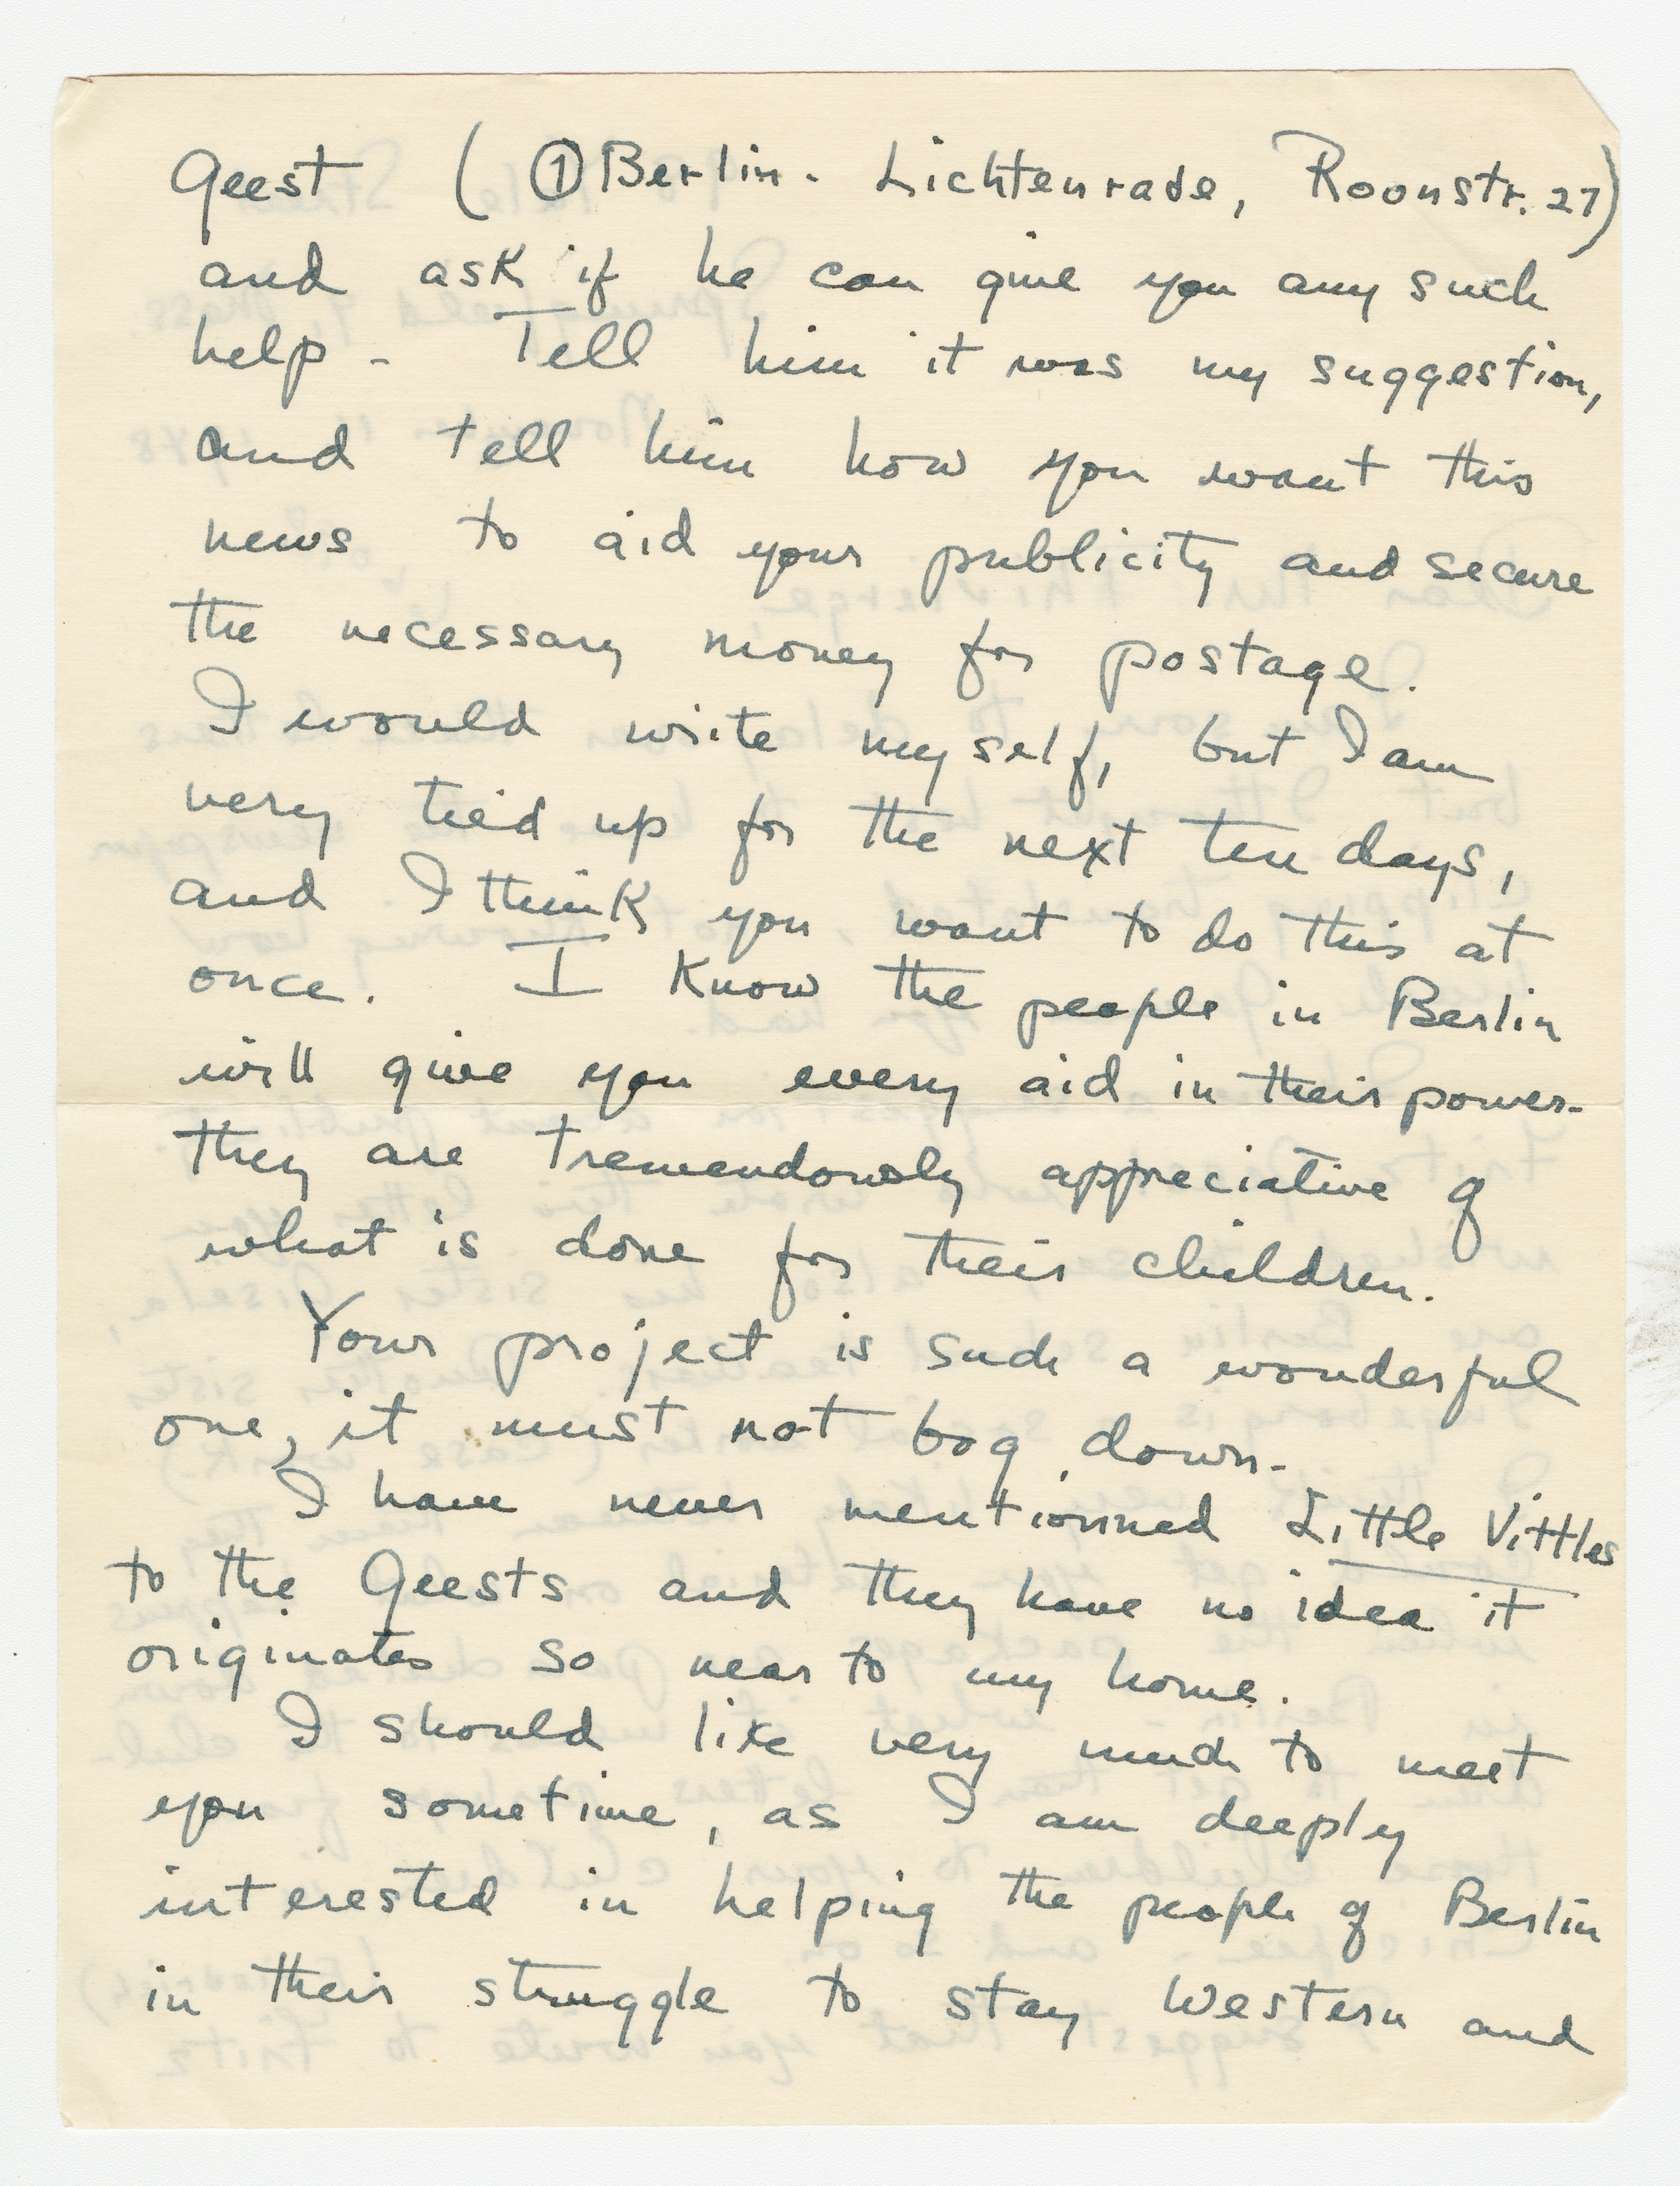 Geest ( ① Berlin - Lichtenrade, Roonstr. 27)
and ask if he can give you any such
help - Tell him it was my suggestion,
and tell him how you want this
news to aid your publicity and secure
the necessary money for postage.
I would write myself, but I am
very tied up for the next ten days,
and I think you want to do this at
once. I know the people in Berlin
will give you every aid in their power-
they are tremendously appreciative of
what is done for their children.
Your project is such a wonderful
one, it must not bog down-
I have never mentionned Little Vittles
to the Geests and they have no idea it
originates so near to my home.
I should like very much to meet
you sometime, as I am deeply
interested in helping the people of Berlin
in their struggle to stay Western and